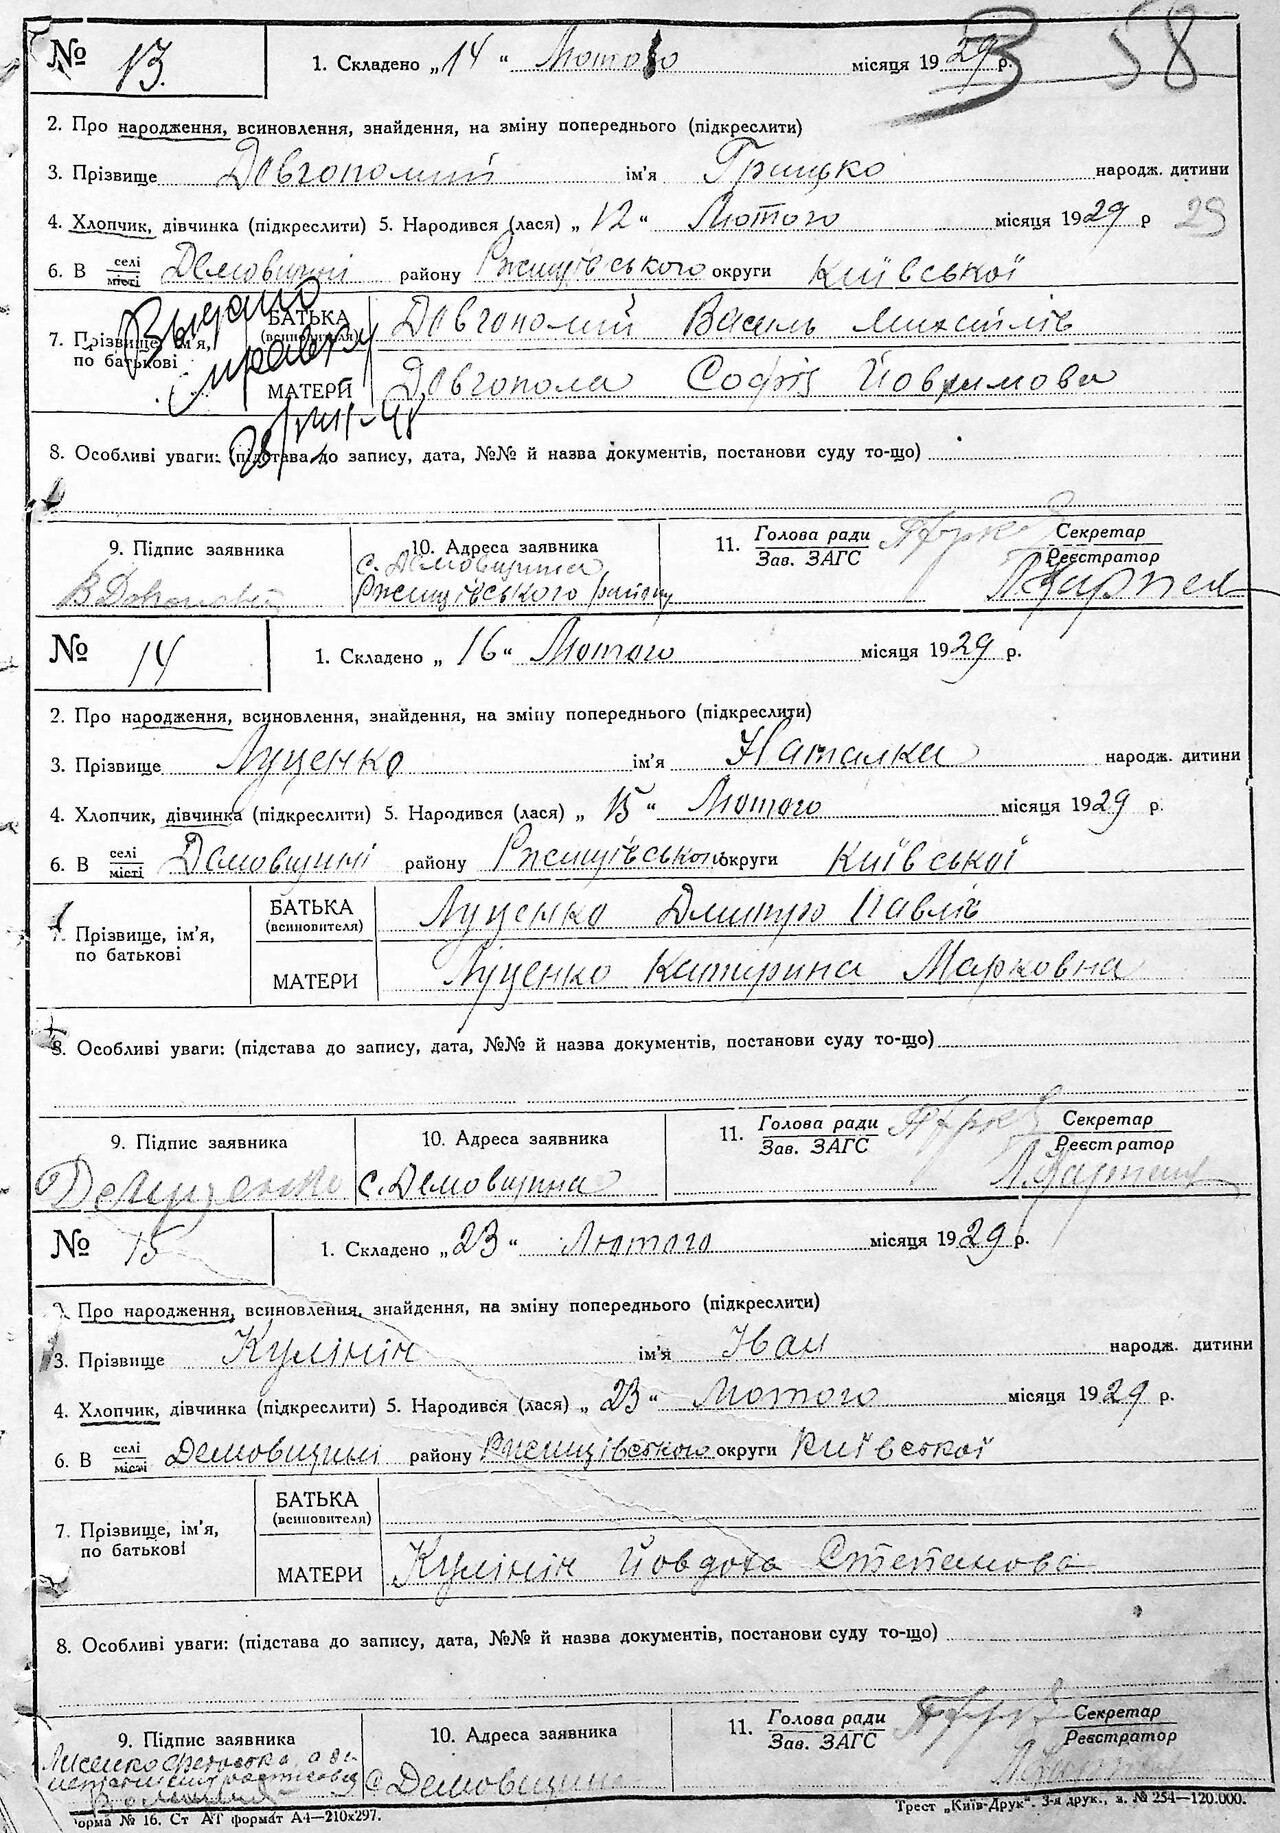 № 13. 1. Складено „14“ Лютого місяця 1929 р. 58
2. Про народження, всиновлення, знайдення, на зміну попереднього (підкреслити)
3. Прізвище Довгополий ім'я Грицько народж. дитини
4. Хлопчик, дівчинка (підкреслити) 5. Народився (лася) „12“ Лютого місяця 1929 р 29
6. В селі/місті Демовщині району Ржищівського округи Київської
7. Прізвище, ім'я, по батькові
БАТЬКА (всиновителя) Довгополий Василь Михайлів
МАТЕРИ Довгопола Софія Йовхимова
Выдано справку
28/VIII-48
8. Особливі уваги: (підстава до запису, дата, №№ й назва документів, постанови суду то-що)
9. Підпис заявника
10. Адреса заявника
с. Демовщина
Ржищівського району
11. Голова ради Секретар
Зав. ЗАГС Реєстратор
№ 14 1. Складено „16“ Лютого місяця 1929 р.
2. Про народження, всиновлення, знайдення, на зміну попереднього (підкреслити)
3. Прізвище Луценко ім'я Наталка народж. дитини
4. Хлопчик, дівчинка (підкреслити) 5. Народився (лася) „15“ Лютого місяця 1929 р.
6. В селі/місті Демовщині району Ржищівського округи Київської
7. Прізвище, ім'я, по батькові
БАТЬКА (всиновителя) Луценко Дмитро Павлів
МАТЕРИ Луценко Катирина Марковна
8. Особливі уваги: (підстава до запису, дата, №№ й назва документів, постанови суду то-що)
9. Підпис заявника
10. Адреса заявника
с. Демовщина
11. Голова ради Секретар
Зав. ЗАГС Реєстратор
№ 15 1. Складено „23“ Лютого місяця 1929 р.
2. Про народження, всиновлення, знайдення, на зміну попереднього (підкреслити)
3. Прізвище Кулінін ім'я Іван народж. дитини
4. Хлопчик, дівчинка (підкреслити) 5. Народився (лася) „23“ Лютого місяця 1929 р.
6. В селі/місті Демовщині району Ржищівського округи Київської
7. Прізвище, ім'я, по батькові
БАТЬКА (всиновителя)
МАТЕРИ Кулінін Йовдоха Степанова
8. Особливі уваги: (підстава до запису, дата, №№ й назва документів, постанови суду то-що)
9. Підпис заявника
10. Адреса заявника
с Демовщина
11. Голова ради Секретар
Зав. ЗАГС Реєстратор
форма № 16. Ст АТ формат А4—210х297.
Трест „Київ-Друк“. 3-я друк., з. № 254—120.000.